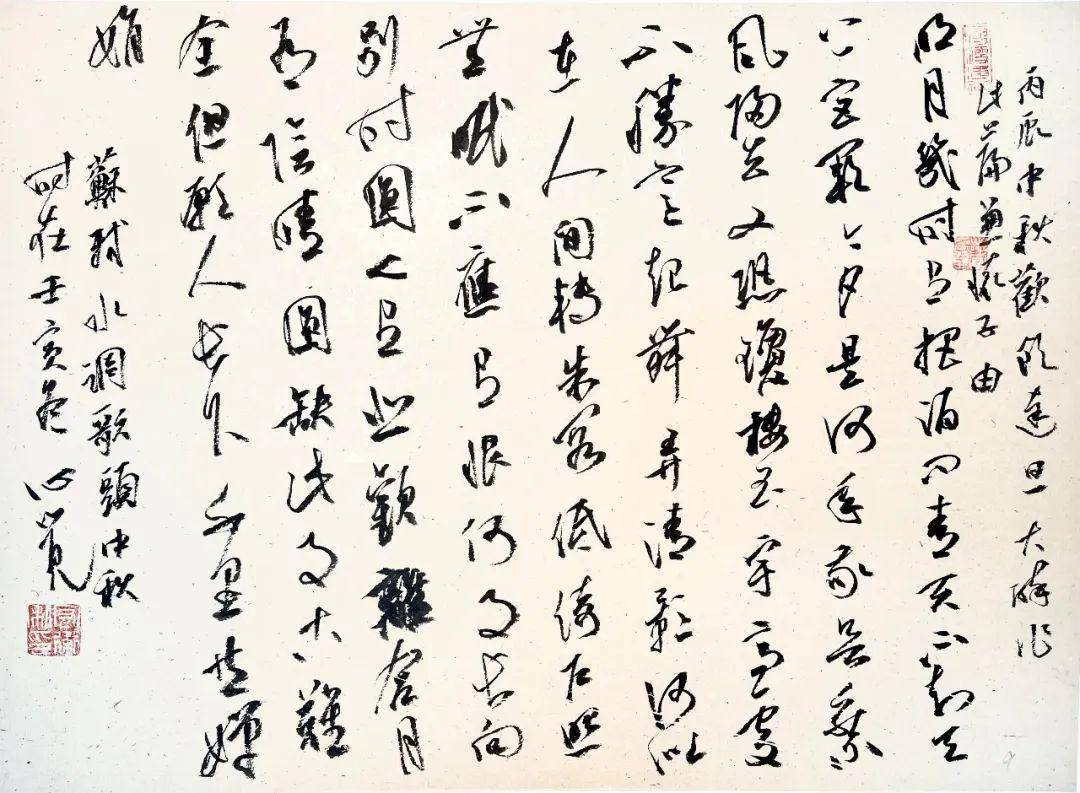 丙辰中秋歡飲達旦大醉作
此篇兼懷子由
明月幾時有把酒問青天不知天
上宮闕今夕是何年我欲乘
風歸去又恐瓊樓玉宇高處
不勝寒起舞弄清影何似
在人間轉朱閣低綺户照
無眠不應有恨何事長向
別時圓人有悲歡離合月
有陰晴圓缺此事古難
全但願人長久千里共嬋
娟
蘇軾水調歌頭中秋
時在壬寅 心覺